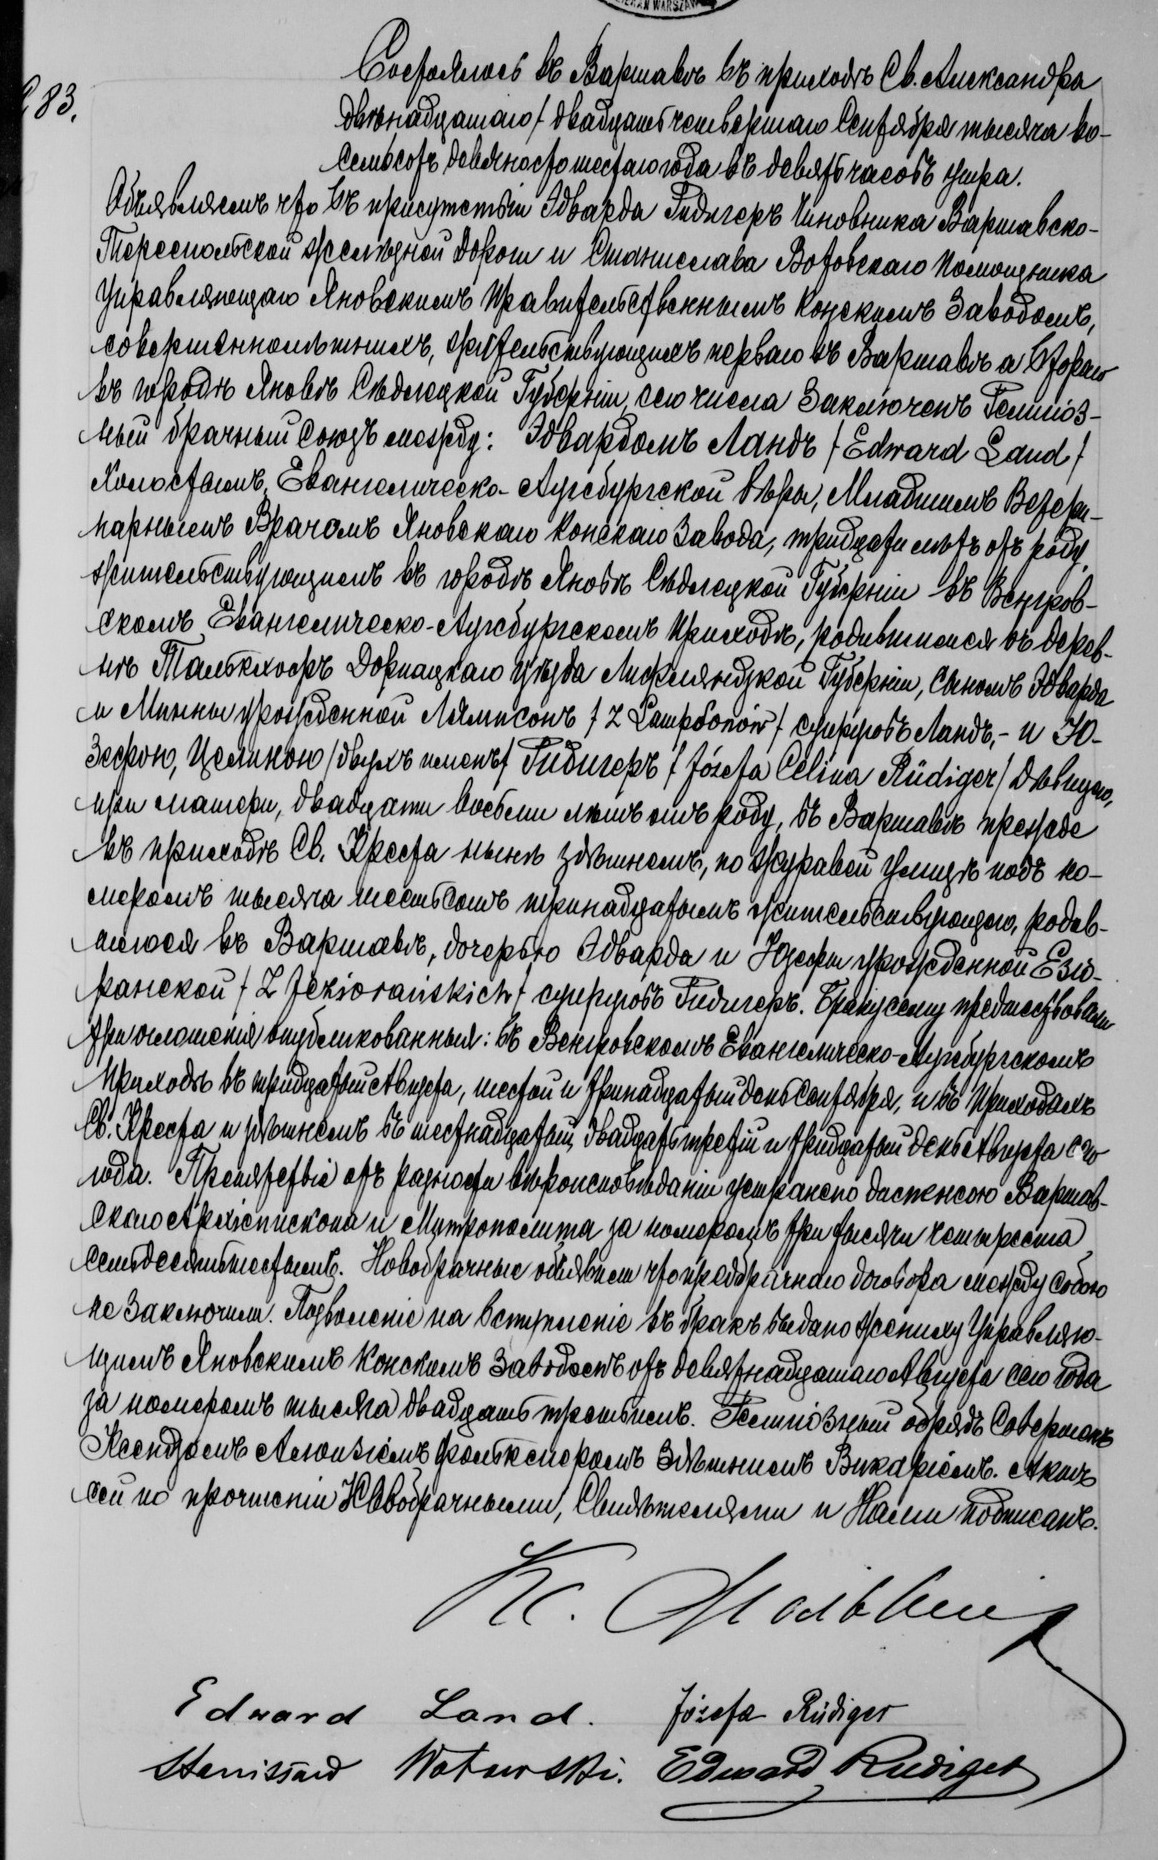 WARSZAW
283.
Состоялось въ Варшавѣ въ приходѣ Св. Александра
двѣнадцатаго / двадцать четвертаго Сентября тысяча во-
семьсотъ девяносто шестаго года въ девять часовъ утра.
Объявляемъ что въ присутствіи Эдварда Ридигеръ Чиновника Варшавско-
Тереспольской желѣзной дороги и Станислава Вотовскаго Помощника
Управляющаго Яновскимъ Правительственнымъ Конскимъ Заводомъ,
совершеннолѣтнихъ, жительствующихъ перваго въ Варшавѣ а втораго
въ городѣ Яновѣ Сѣдлецкой Губерніи, сего числа заключенъ Религіоз-
ный брачный союзъ между: Эдвардомъ Ландъ / Edward Land /
Холостымъ, Евангелическо-Аугсбургской вѣры, Младшимъ Ветери-
нарнымъ Врачомъ Яновскаго Конскаго Завода, тридцати лѣтъ отъ роду,
жительствующимъ въ городѣ Яновѣ Сѣдлецкой Губерніи въ Венгров-
скомъ Евангелическо-Аугсбургскомъ Приходѣ, родившимся въ дерев-
нѣ Талькгофъ Дорпацкаго уѣзда Лифляндской Губерніи, сыномъ Эдварда
и Минны урожденной Лямпсонъ / z Lampsonów / супруговъ Ландъ, - и Ю-
зефою, Целиною / двухъ именъ / Ридигеръ / Józefa Celina Rüdiger / дѣвицею,
при матери, двадцати восьми лѣтъ отъ роду, въ Варшавѣ прежде
въ приходѣ Св. Креста нынѣ здѣшнемъ, по Журавей улицѣ подъ но-
меромъ тысяча шестьсотъ тринадцатымъ жительствующею, родив-
шеюся въ Варшавѣ, дочерью Эдварда и Юзефы урожденной Езіо-
ранской / z Jeziorańskich / супруговъ Ридигеръ. Браку сему предшествовали
три оглашенія опубликованныя: въ Венгровскомъ Евангелическо-Аугсбургскомъ
Приходѣ въ тридцатый Августа, шестой и тринадцатый день Сентября, и въ Приходахъ
Св. Креста и здѣшнемъ въ шестнадцатый, двадцать третій и тридцатый день Августа сего
года. Препятствіе отъ разности вѣроисповѣданій устранено диспенсою Варшав-
скаго Архіепископа и Митрополита за номеромъ три тысячи четыреста
семьдесятъ шестымъ. Новобрачные объявили что предбрачнаго договора между собою
не заключили. Позволеніе на вступленіе въ бракъ выдано жениху Управляю-
щимъ Яновскимъ Конскимъ Заводомъ отъ девятнадцатаго Августа сего года
за номеромъ тысяча двадцать третьимъ. Религіозный обрядъ совершенъ
Ксендзомъ Алоизіемъ Фолькмеромъ Здѣшнимъ Викаріемъ. Актъ
сей по прочтеніи Новобрачными, Свидѣтелями и Нами подписанъ.
Кс.
Edward Land. Józefa Rüdiger
Stanisław Wotowski. Edward Rüdiger